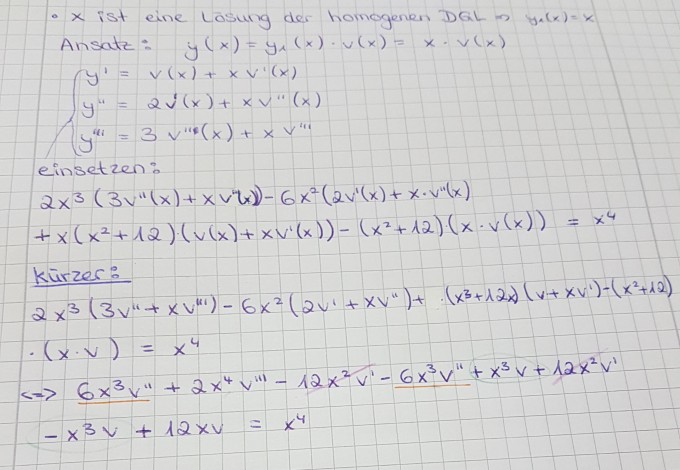 • x ist eine Lösung der homogenen DGL ⇒ y₁(x) = x
Ansatz: y(x) = y₁(x) · v(x) = x · v(x)
y' = v(x) + x v'(x)
y'' = 2v'(x) + x v''(x)
y''' = 3 v''(x) + x v'''
einsetzen:
2x³ (3v''(x) + x v'''(x)) - 6x² (2v'(x) + x · v''(x)
+ x (x² + 12) · (v(x) + x v'(x)) - (x² + 12) (x · v(x)) = x⁴
Kürzer:
2x³ (3v'' + x v''') - 6x² (2v' + x v'') + · (x³ + 12x) (v + x v') - (x² + 12)
· (x · v) = x⁴
<=> 6x³v'' + 2x⁴ v''' - 12x² v' - 6x³ v'' + x³ v + 12x² v'
- x³ v + 12 x v = x⁴